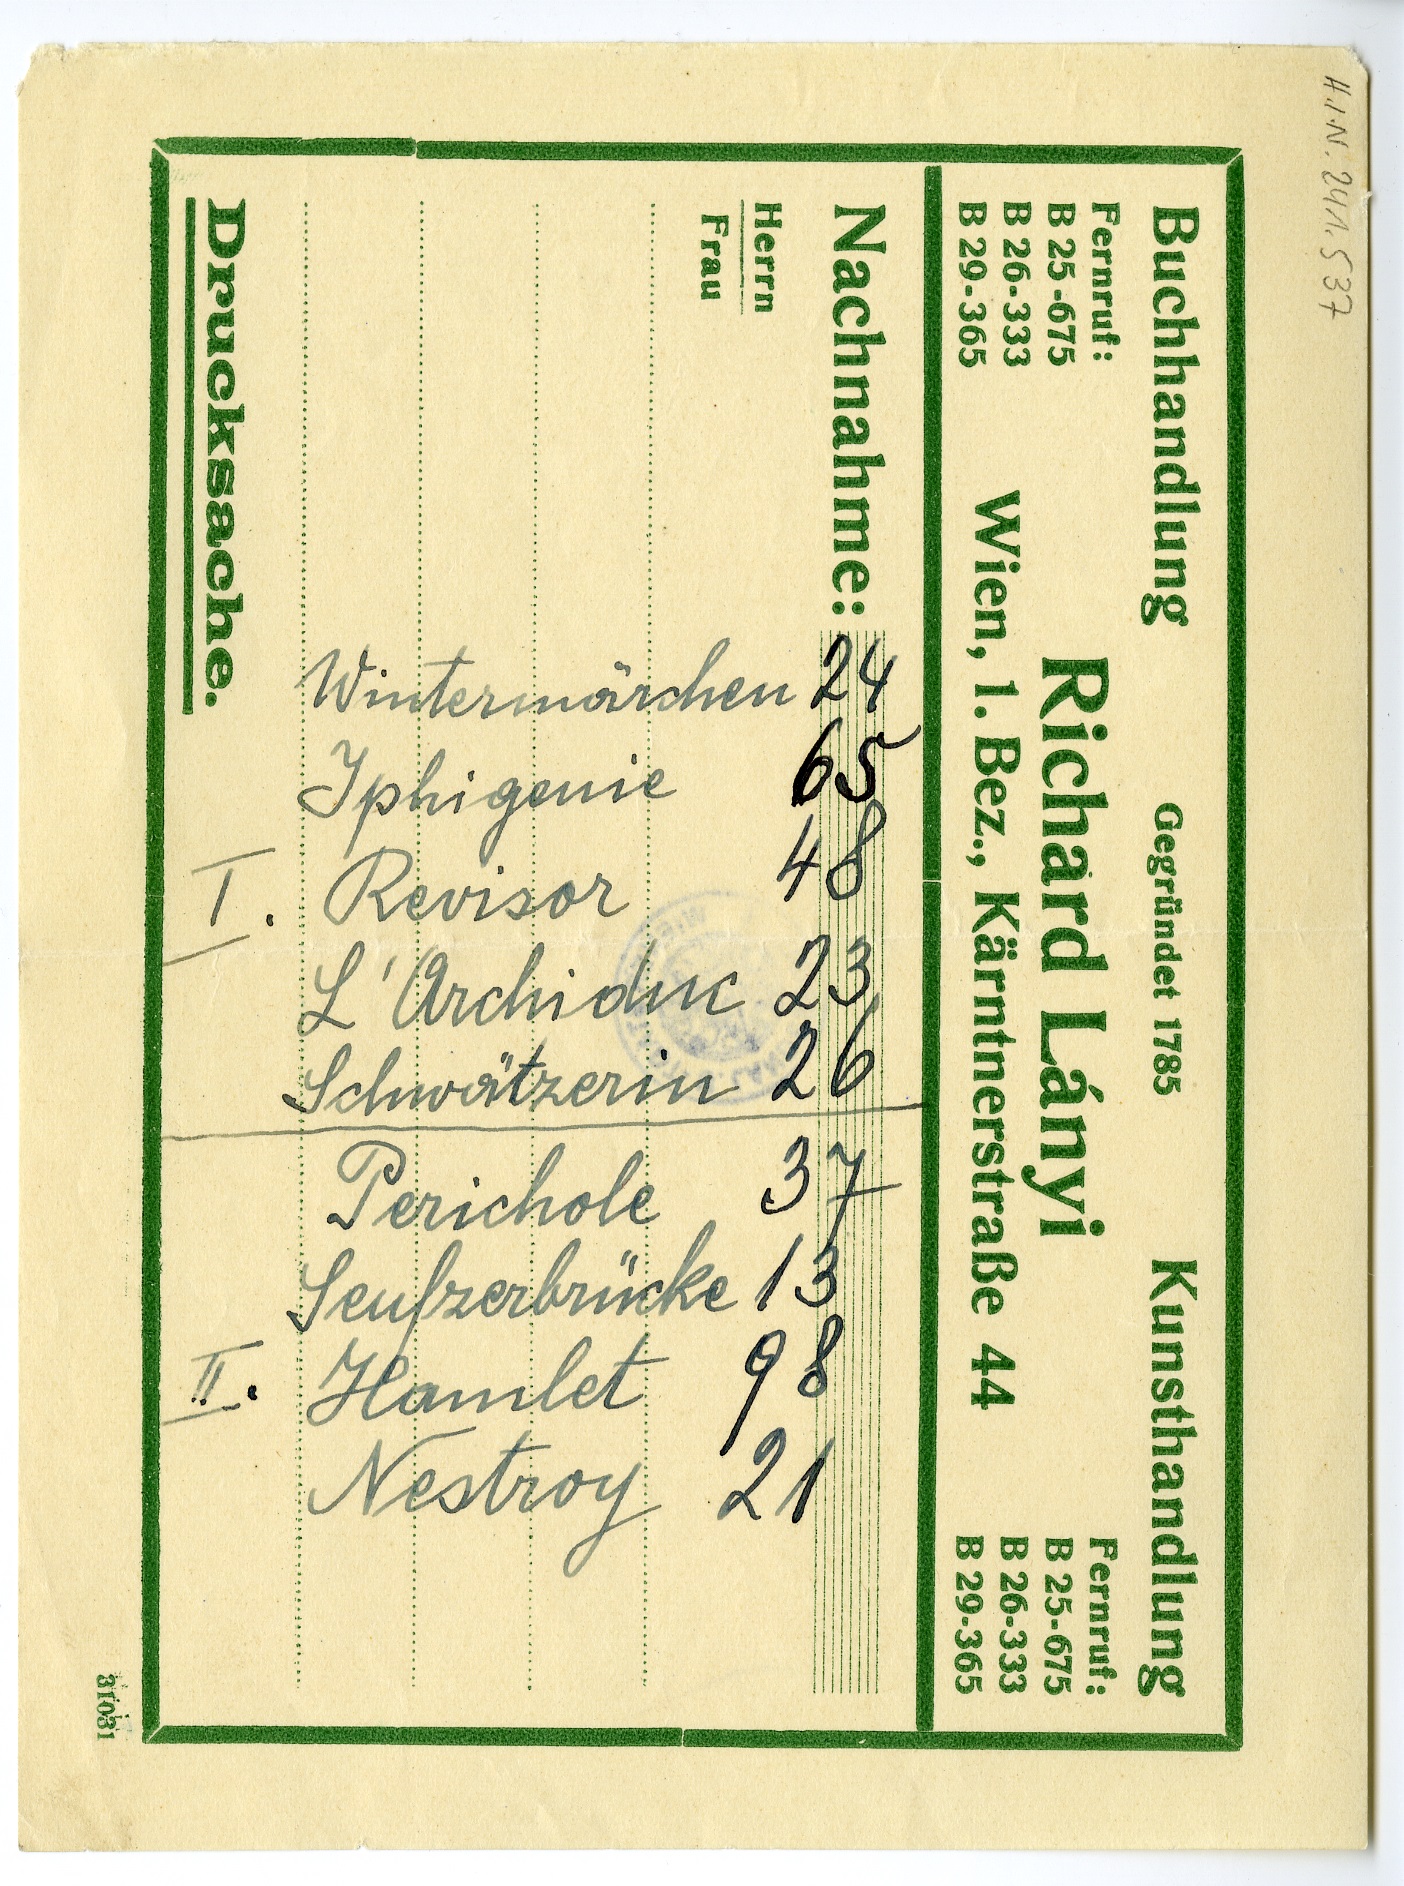 H.I.N. 241.537
Buchhandlung Gegründet 1785 Kunsthandlung
Fernruf:
B 25-675
B 26-333
B 29-365
Richard Lányi
Wien, 1. Bez., Kärntnerstraße 44
Fernruf:
B 25-675
B 26-333
B 29-365
Nachnahme:
Herrn
Frau
Drucksache.
31031
Wintermärchen 24
Iphigenie 65
I. Revisor 48
L'Archiduc 23
Schwätzerin 26
Perichole 37
Seufzerbrücke 13
II. Hamlet 98
Nestroy 21